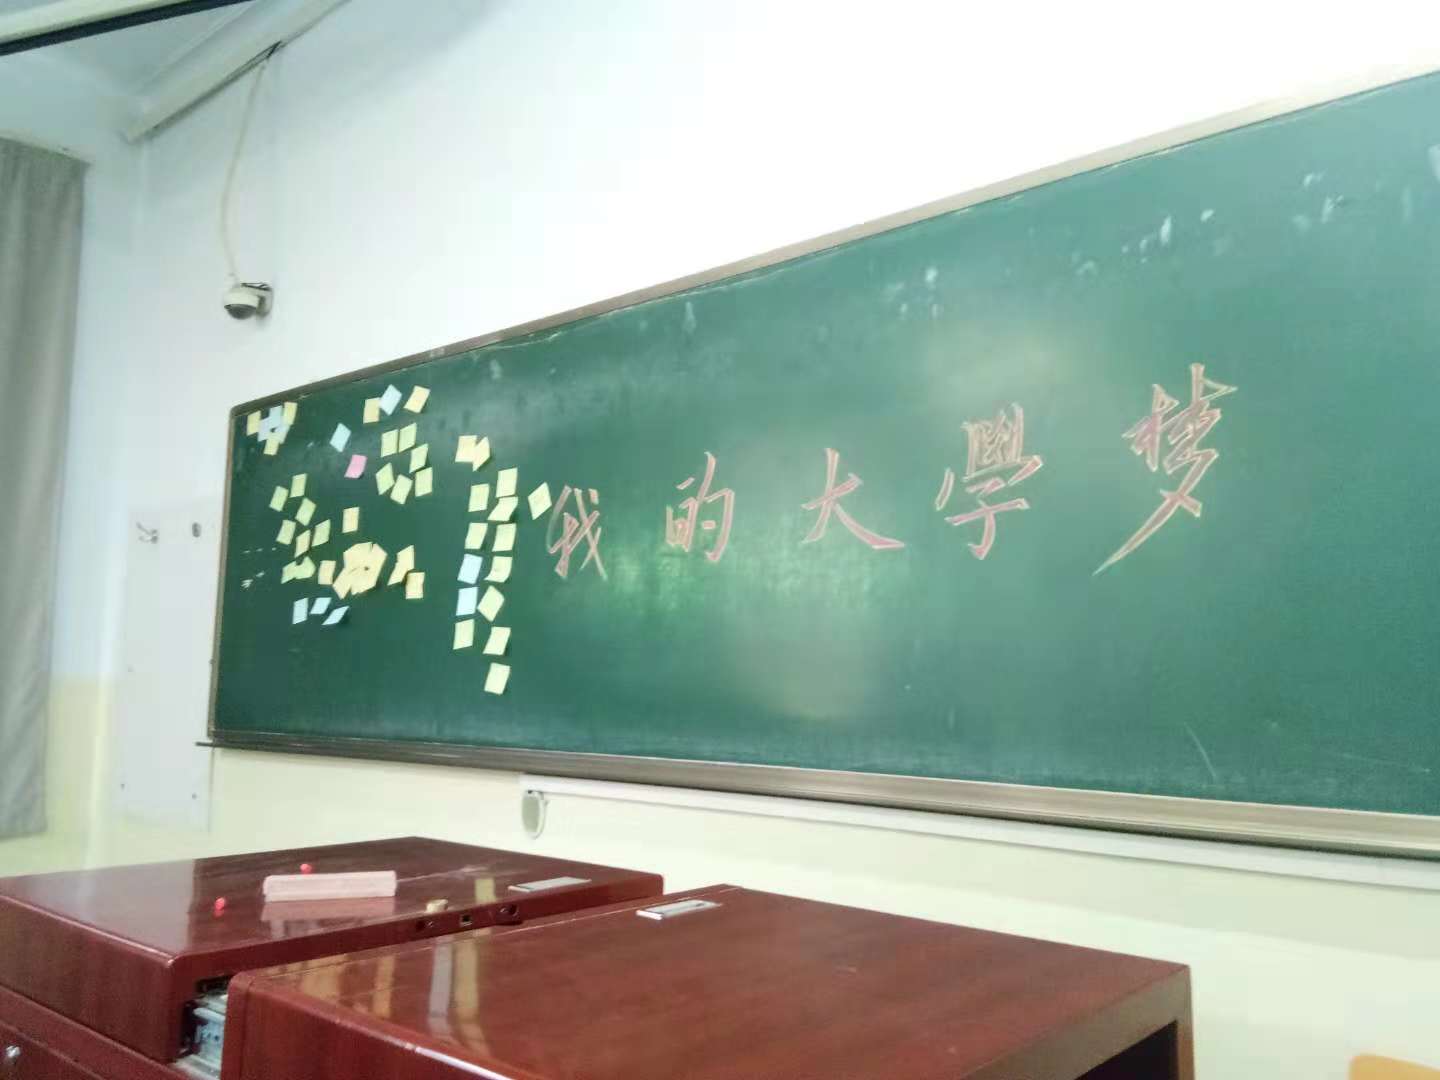 我的大學梦